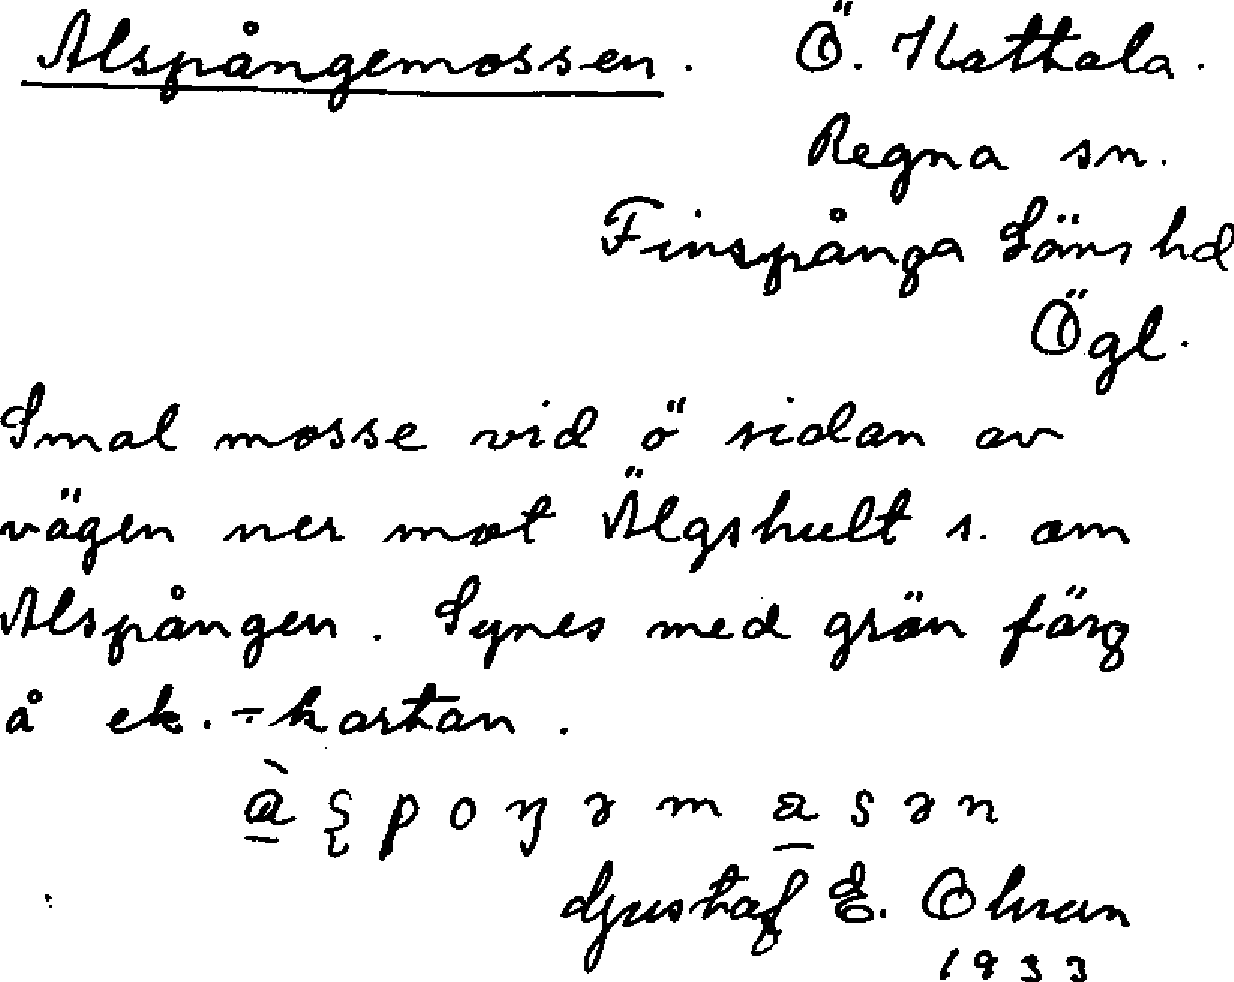 Alspångemossen. Ö. Hattala.
Regna sn.
Finspånga Läns hd
Ögl.
Smal mosse vid ö sidan av
vägen ner mot Älgshult s. om
Alspången. Synes med grön färg
å ek.-kartan.
Gustaf E. Ohran
1933